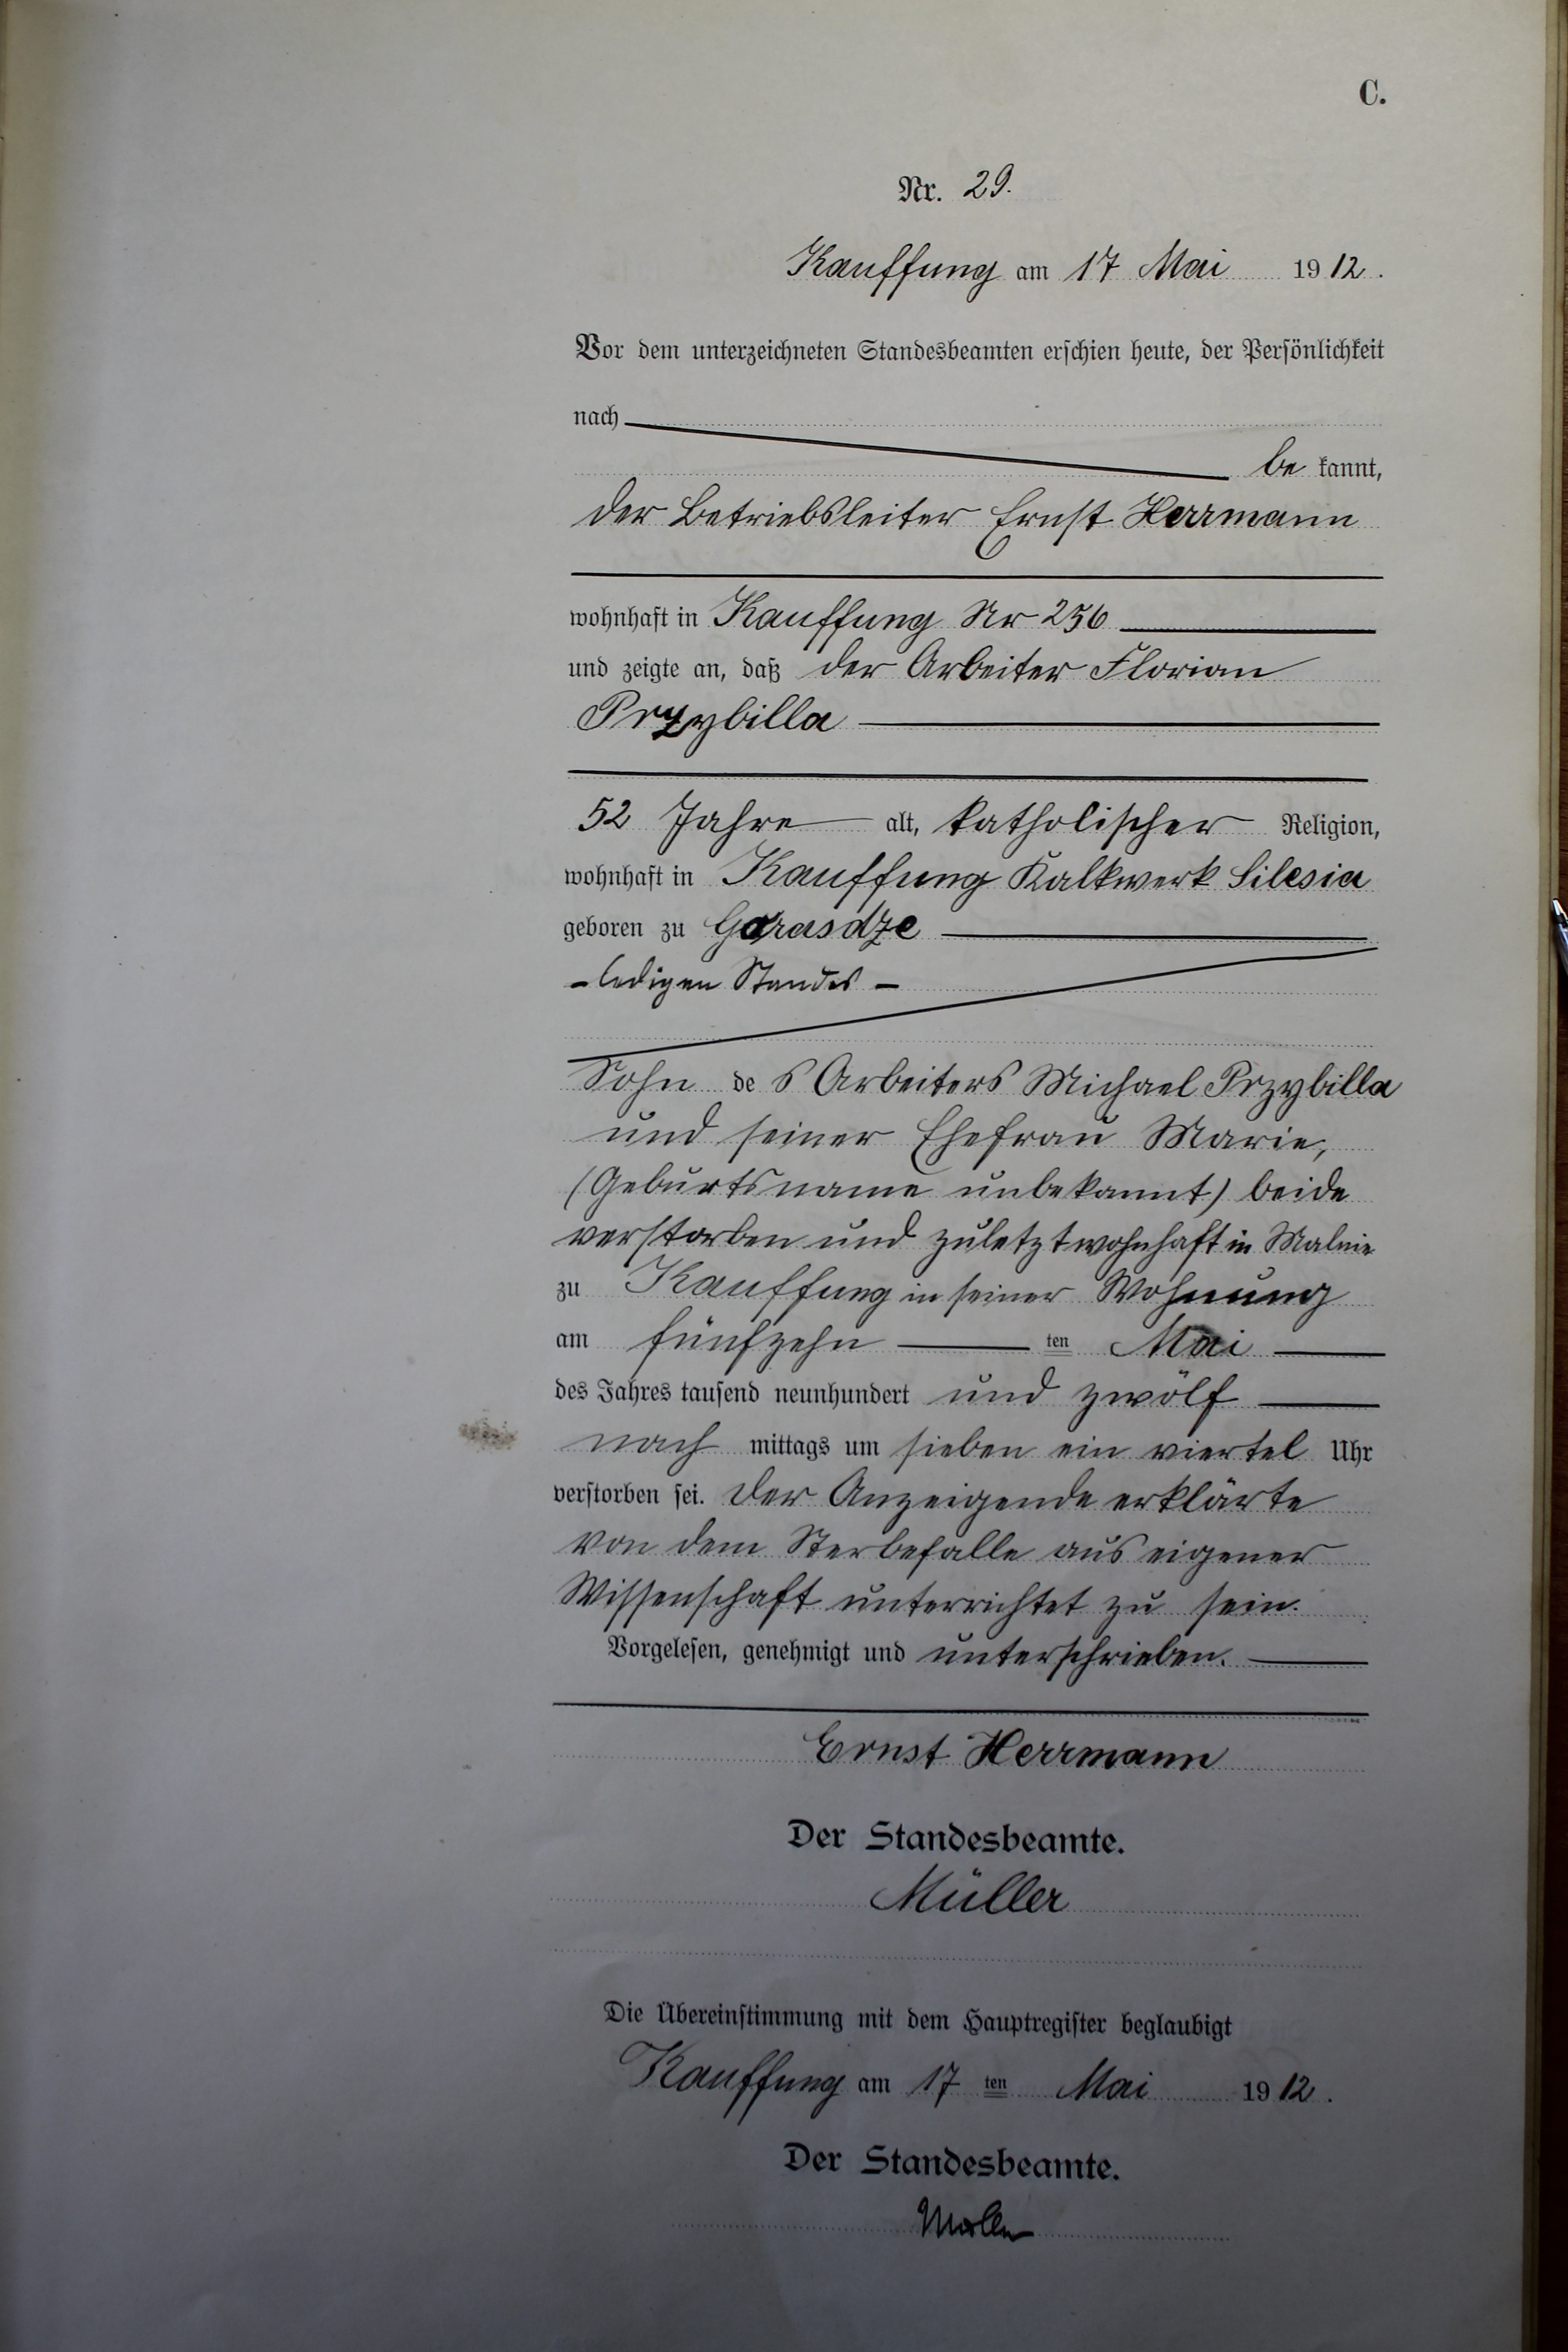 C.
Nr. 29.
Kauffung am 17 Mai 1912.
Vor dem unterzeichneten Standesbeamten erschien heute, der Persönlichkeit
nach
be kannt,
der Betriebsleiter Ernst Herrmann
wohnhaft in Kauffung Nr 256
und zeigte an, daß der Arbeiter Florian
Przybilla
52 Jahre alt, katholischer Religion,
wohnhaft in Kauffung Kalkwerk Silesia
geboren zu Gorasdze
- ledigen Standes -
Sohn des Arbeiters Michael Przybilla
und seiner Ehefrau Marie,
(Geburtsname unbekannt) beide
verstorben und zuletzt wohnhaft in Malnie
zu Kauffung in seiner Wohnung
am fünfzehn ten Mai
des Jahres tausend neunhundert und zwölf
nach mittags um sieben ein viertel Uhr
verstorben sei. Der Anzeigende erklärte
von dem Sterbefalle aus eigener
Wissenschaft unterrichtet zu sein.
Vorgelesen, genehmigt und unterschrieben.
Ernst Herrmann
Der Standesbeamte.
Müller
Die Übereinstimmung mit dem Hauptregister beglaubigt
Kauffung am 17 ten Mai 1912.
Der Standesbeamte.